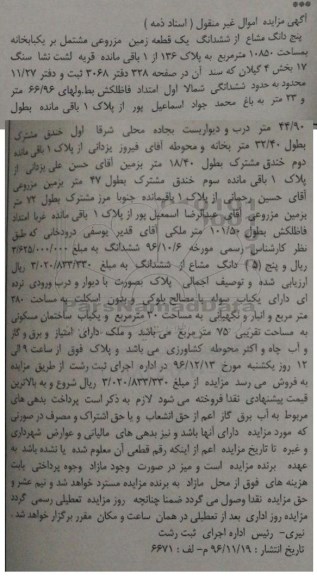 آگهی مزایده اموال غیر منقول (اسناد ذمه)
پنج دانگ مشاع از ششدانگ یک قطعه زمین مزروعی مشتمل بر یکبابخانه
بمساحت ۱۰۸۵۰ مترمربع به پلاک ۱۳۶ از ۱ باقی مانده قریه لشت نشا سنگ
۱۷ بخش ۴ گیلان که سند آن در صفحه ۳۲۸ دفتر ۳۰۶۸ ثبت و دفتر ۱۱/۲۷
محدود به حدود ششدانگی شمالا اول امتداد فاظلکش بطولهای ۶۶/۹۶ متر
و ۲۳ متر به باغ محمد جواد اسماعیل پور از پلاک ۱ باقی مانده بطول
۴۴/۹۰ متر درب و دیواریست بجاده محلی شرقا اول خندق مشترک
بطول ۳۲/۴۰ متر بخانه و محوطه آقای فیروز یزدانی از پلاک ۱ باقی مانده
دوم خندق مشترک بطول ۱۸/۴۰ متر بزمین آقای حسن علی یزدانی از
پلاک ۱ باقی مانده سوم خندق مشترک بطول ۴۷ متر بزمین مزروعی
آقای حسین رحمانی از پلاک ۱ باقیمانده جنوبا مرز مشترک بطول ۷۳ متر
بزمین مزروعی آقای عبدالرضا اسمعیل پور از پلاک ۱ باقی مانده غربا امتداد
فاظلکش بطول ۱۰۱/۵۰ متر ملکی آقای قدیر یوسفی درودخانی که طبق
نظر کارشناس رسمی مورخه ۹۶/۱۰/۶ ششدانگ به مبلغ ۳/۶۲۵/۰۰۰/۰۰۰
ریال و پنج (۵) دانگ مشاع از ششدانگ به مبلغ ۳/۰۲۰/۸۳۳/۳۳۰ ریال
ارزیابی شده و توصیف اجمالی پلاک بصورت با دیوار و درب ورودی نرده
ای دارای یکباب سوله با مصالح بلوکی و بدون اسکلت به مساحت ۲۸۰
متر مربع و انبار و نگهبانی به مساحت ۲۰ مترمربع و یکباب ساختمان مسکونی
به مساحت تقریبی ۷۵ متر مربع می باشد و ملک دارای امتیاز و برق و گاز
و آب چاه و اکثر محوطه کشاورزی می باشد و پلاک فوق از ساعت ۹ الی
۱۲ روز یکشنبه مورخ ۹۶/۱۲/۱۳ در اداره اجرای ثبت رشت از طریق مزایده
به فروش می رسد مزایده از مبلغ ۳/۰۲۰/۸۳۳/۳۳۰ ریال شروع و به بالاترین
قیمت پیشنهادی نقدا فروخته می شود لازم به ذکر است پرداخت بدهی های
مربوط به آب برق گاز اعم از حق انشعاب و یا حق اشتراک و مصرف در صورتی
که مورد مزایده دارای آنها باشد و نیز بدهی های مالیاتی و عوارض شهرداری
و غیره تا تاریخ مزایده اعم از اینکه رقم قطعی آن معلوم شده یا نشده باشد به
عهده برنده مزایده است و میز در صورت وجود مازاد وجوه پرداختی بابت
هزینه های فوق از محل مازاد به برنده مزایده مسترد خواهد شد و نیم عشر و
حق مزایده نقدا وصول می گردد ضمنا چنانچه روز مزایده تعطیلی رسمی گردد
مزایده روز اداری بعد از تعطیلی در همان ساعت و مکان مقرر برگزار خواهد شد.
نیری- رئیس اداره اجرای ثبت رشت
تاریخ انتشار : ۹۶/۱۱/۱۹ م- لف : ۶۶۷۱